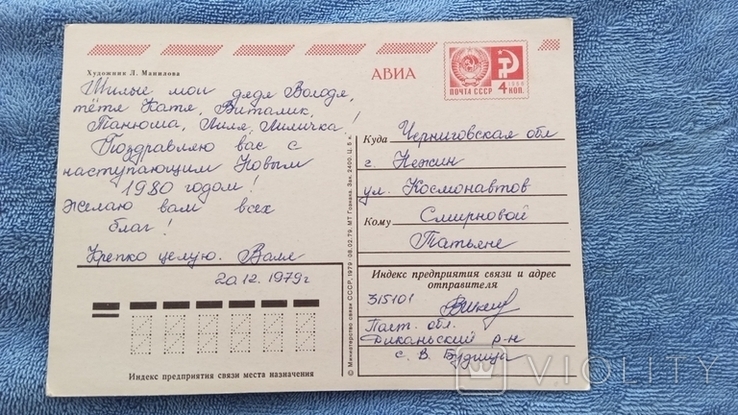 Художник Л. Манилова
АВИА
ПОЧТА СССР
4 КОП.
Милые мои дядя Володя,
тётя Катя, Виталик,
Танюша, Лиля, Лиличка!
Поздравляю вас с
наступающим Новым
1980 годом!
Желаю вам всех
благ!
Крепко целую. Валя
20.12.1979г
Индекс предприятия связи места назначения
© Министерство связи СССР, 1979 · 08.02.79. МТ Гознака. Зак. 2400. Ц. 5 к.
Куда Черниговская обл
г. Нежин
ул. Космонавтов
Кому Смирновой
Татьяне
Индекс предприятия связи и адрес
отправителя
315101
Полт. обл.
Диканьский р-н
с. В. Будища
VIOLITY